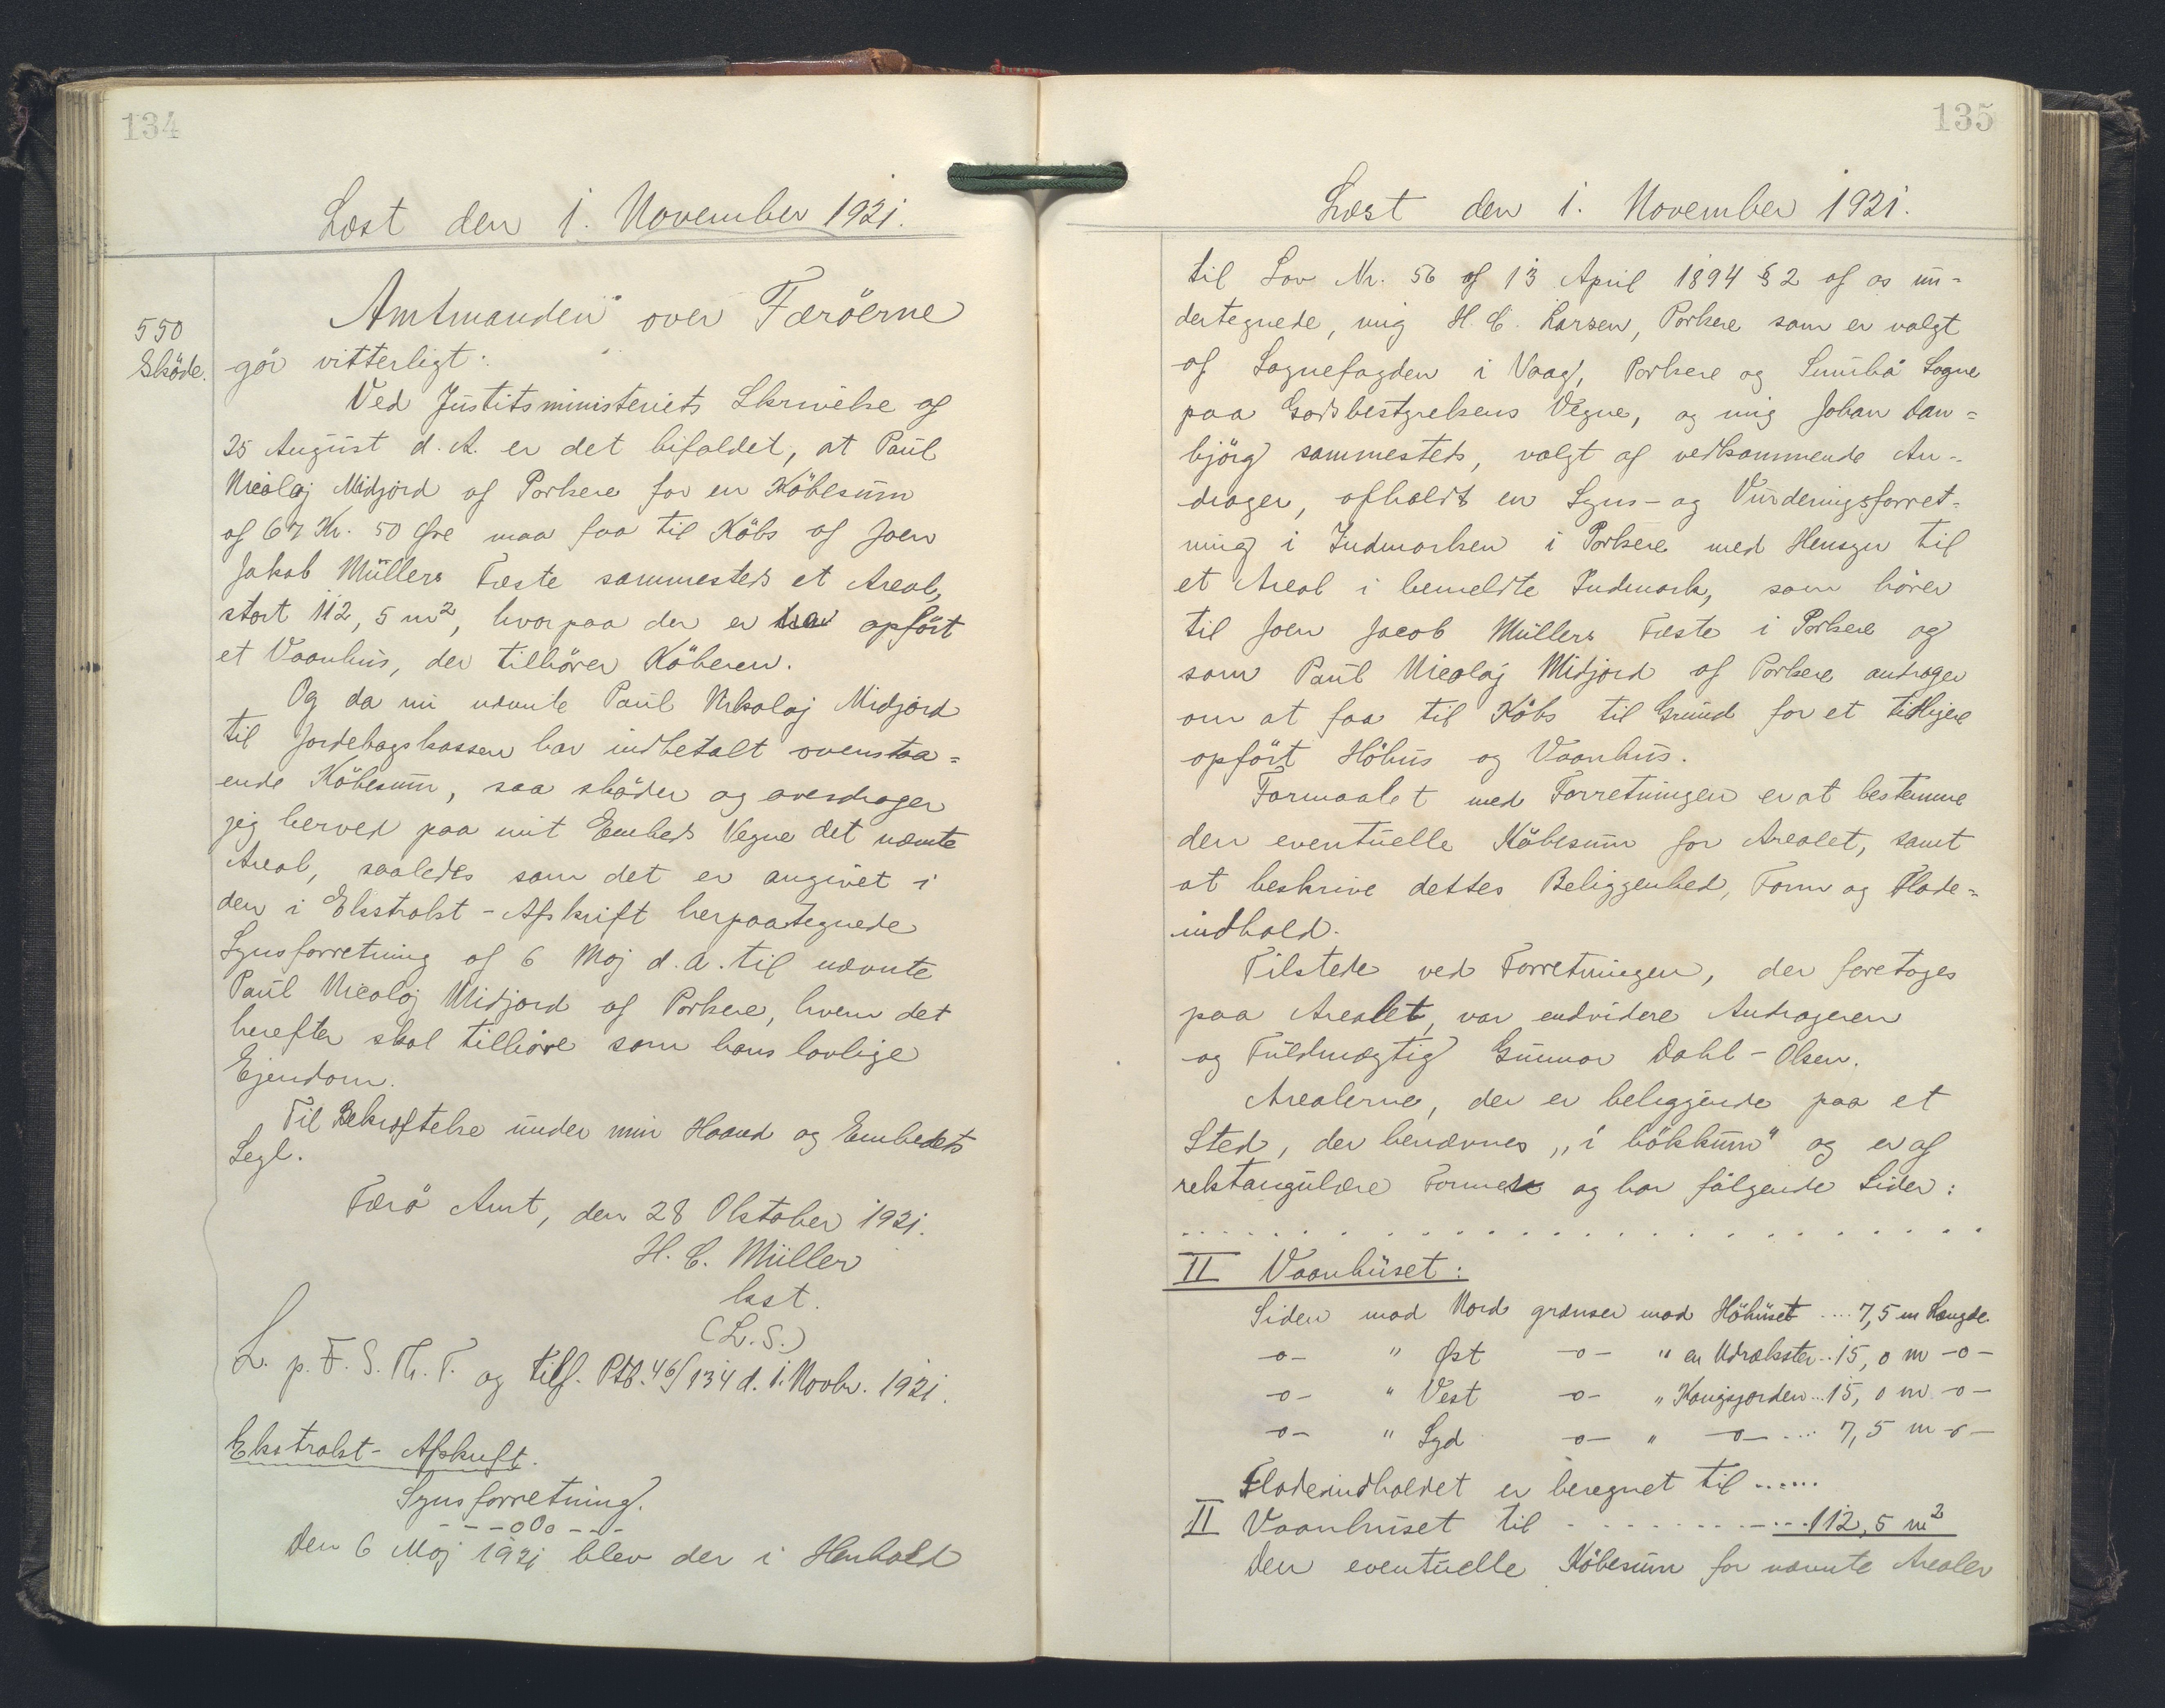 134
Læst den 1. November 1921.
550
Sköde.
Amtmanden over Færöerne
gör vitterligt:
Ved Justitsministeriets Skrivelse af
25 August d. A. er det bifaldet, at Paul
Nicolaj Midjord af Porkere for en Köbesum
af 67 Kr. 50 Øre maa faa til Köbs af Joen
Jakob Müllers Fæste sammesteds et Areal,
stort 112,5 m², hvorpaa der er opfört
et Vaanhus, der tilhörer Köberen.
Og da nu nævnte Paul Nikolaj Midjord
til Jordebogskassen har indbetalt ovenstaa=
ende Köbesum, saa sköder og overdrager
jeg herved paa mit Embeds Vegne det nævnte
Areal, saaledes som det er angivet i
den i Ekstrakt-Afskrift herpaategnede
Synsforretning af 6 Maj d. A. til nævnte
Paul Nicolaj Midjord af Porkere, hvem det
herefter skal tilhöre som hans lovlige
Ejendom.
Til Bekræftelse under min Haand og Embedets
Segl.
Færö Amt, den 28 Oktober 1921.
H. C. Müller
kst.
(L.S.)
L. p. F. S. Th. T. og tilf. Ptb. 46/134 d. 1. Novbr. 1921.
Ekstrakt-Afskrift.
Synsforretning.
---oOo---
Den 6 Maj 1921 blev der i Henhold
135
Læst den 1. November 1921.
til Lov Nr. 56 af 13 April 1894 § 2 af os un=
dertegnede, mig H. C. Larsen, Porkere som er valgt
af Sognefogden i Vaag, Porkere og Sumbö Sogne
paa Godsbestyrelsens Vegne, og mig Johan Dan=
björg sammesteds, valgt af vedkommende An=
drager, afholdt en Syns- og Vurderingsforret=
ning i Indmarken i Porkere med Hensyn til
et Areal i bemeldte Indmark, som hörer
til Joen Jacob Müllers Fæste i Porkere og
som Paul Nicolaj Midjord af Porkere andrager
om at faa til Köbs til Grund for et tidligere
opfört Höhus og Vaanhus.
Formaalet med Forretningen er at bestemme
den eventuelle Köbesum for Arealet, samt
at beskrive dettes Beliggenhed, Form og Flade=
indhold.
Tilstede ved Forretningen, der foretages
paa Arealet, var endvidere Andrageren
og Fuldmægtig Gunnar Dahl-Olsen.
Arealerne, der er beliggende paa et
Sted, der benævnes „i bökkum“ og er af
rektangulære Former og har fölgende Sider:
. . . . . . . . . . . . . . . . . . . . . . . .
II Vaanhuset:
Siden mod Nord grænser mod Höhuset .... 7,5 m Længde
-o- " Øst -o- " en Udrækster .. 15,0 m -o-
-o- " Vest -o- " Kongsjorden ... 15,0 m -o-
-o- " Syd -o- " -o- .... 7,5 m -o-
Fladeindholdet er beregnet til ......
II Vaanhuset til . . . . . . . . 112,5 m²
Den eventuelle Köbesum for nævnte Arealer